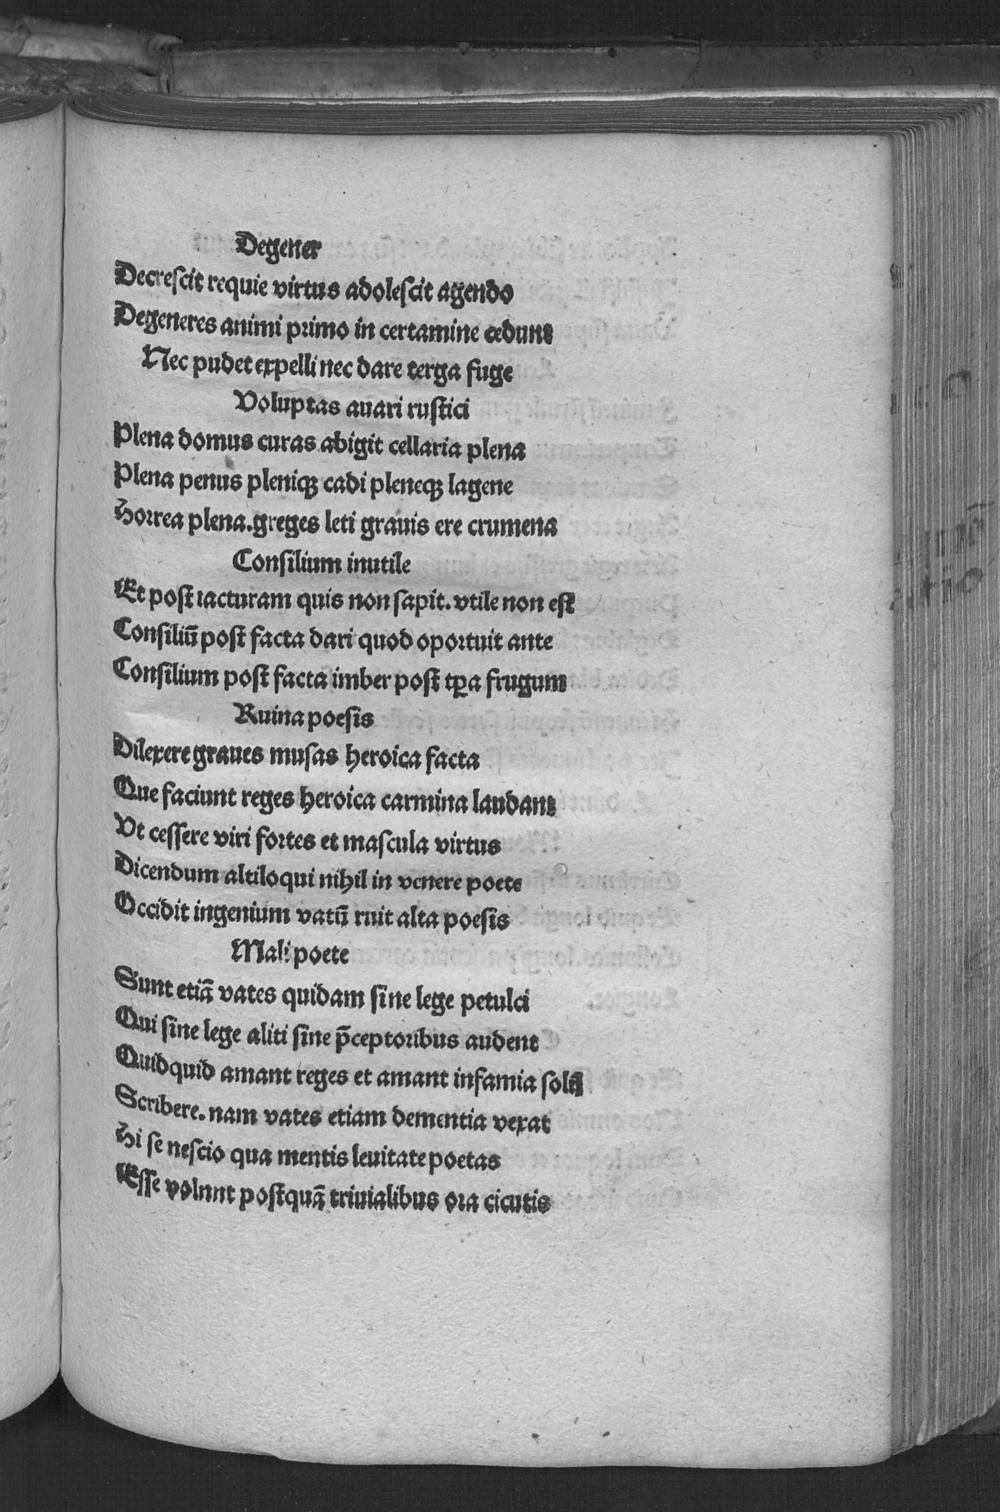 Degener
Decrescit requie virtus adolescit agendo
Degeneres animi primo in certamine cedunt
Nec pudet expelli nec dare terga fuge
Voluptas auari rustici
Plena domus curas abigit cellaria plena
Plena penus pleniqꝫ cadi pleneqꝫ lagene
Horrea plena. greges leti grauis ere crumena
Consilium inutile
Et post iacturam quis non sapit. vtile non est
Consiliū post facta dari quod oportuit ante
Consilium post facta imber post tꝑa frugum
Ruina poesis
Dilexere graues musas heroica facta
Que faciunt reges heroica carmina laudant
Ut cessere viri fortes et mascula virtus
Dicendum altiloqui nihil in venere poete
Occidit ingenium vatū ruit alta poesis
Mali poete
Sunt etiā vates quidam sine lege petulci
Qui sine lege aliti sine p̄ceptoribus audent
Quidquid amant reges et amant infamia
Scribere. nam vates etiam dementia vexat
Hi se nescio qua mentis leuitate poetas
Esse volunt postquā triuialibus ora cicutis